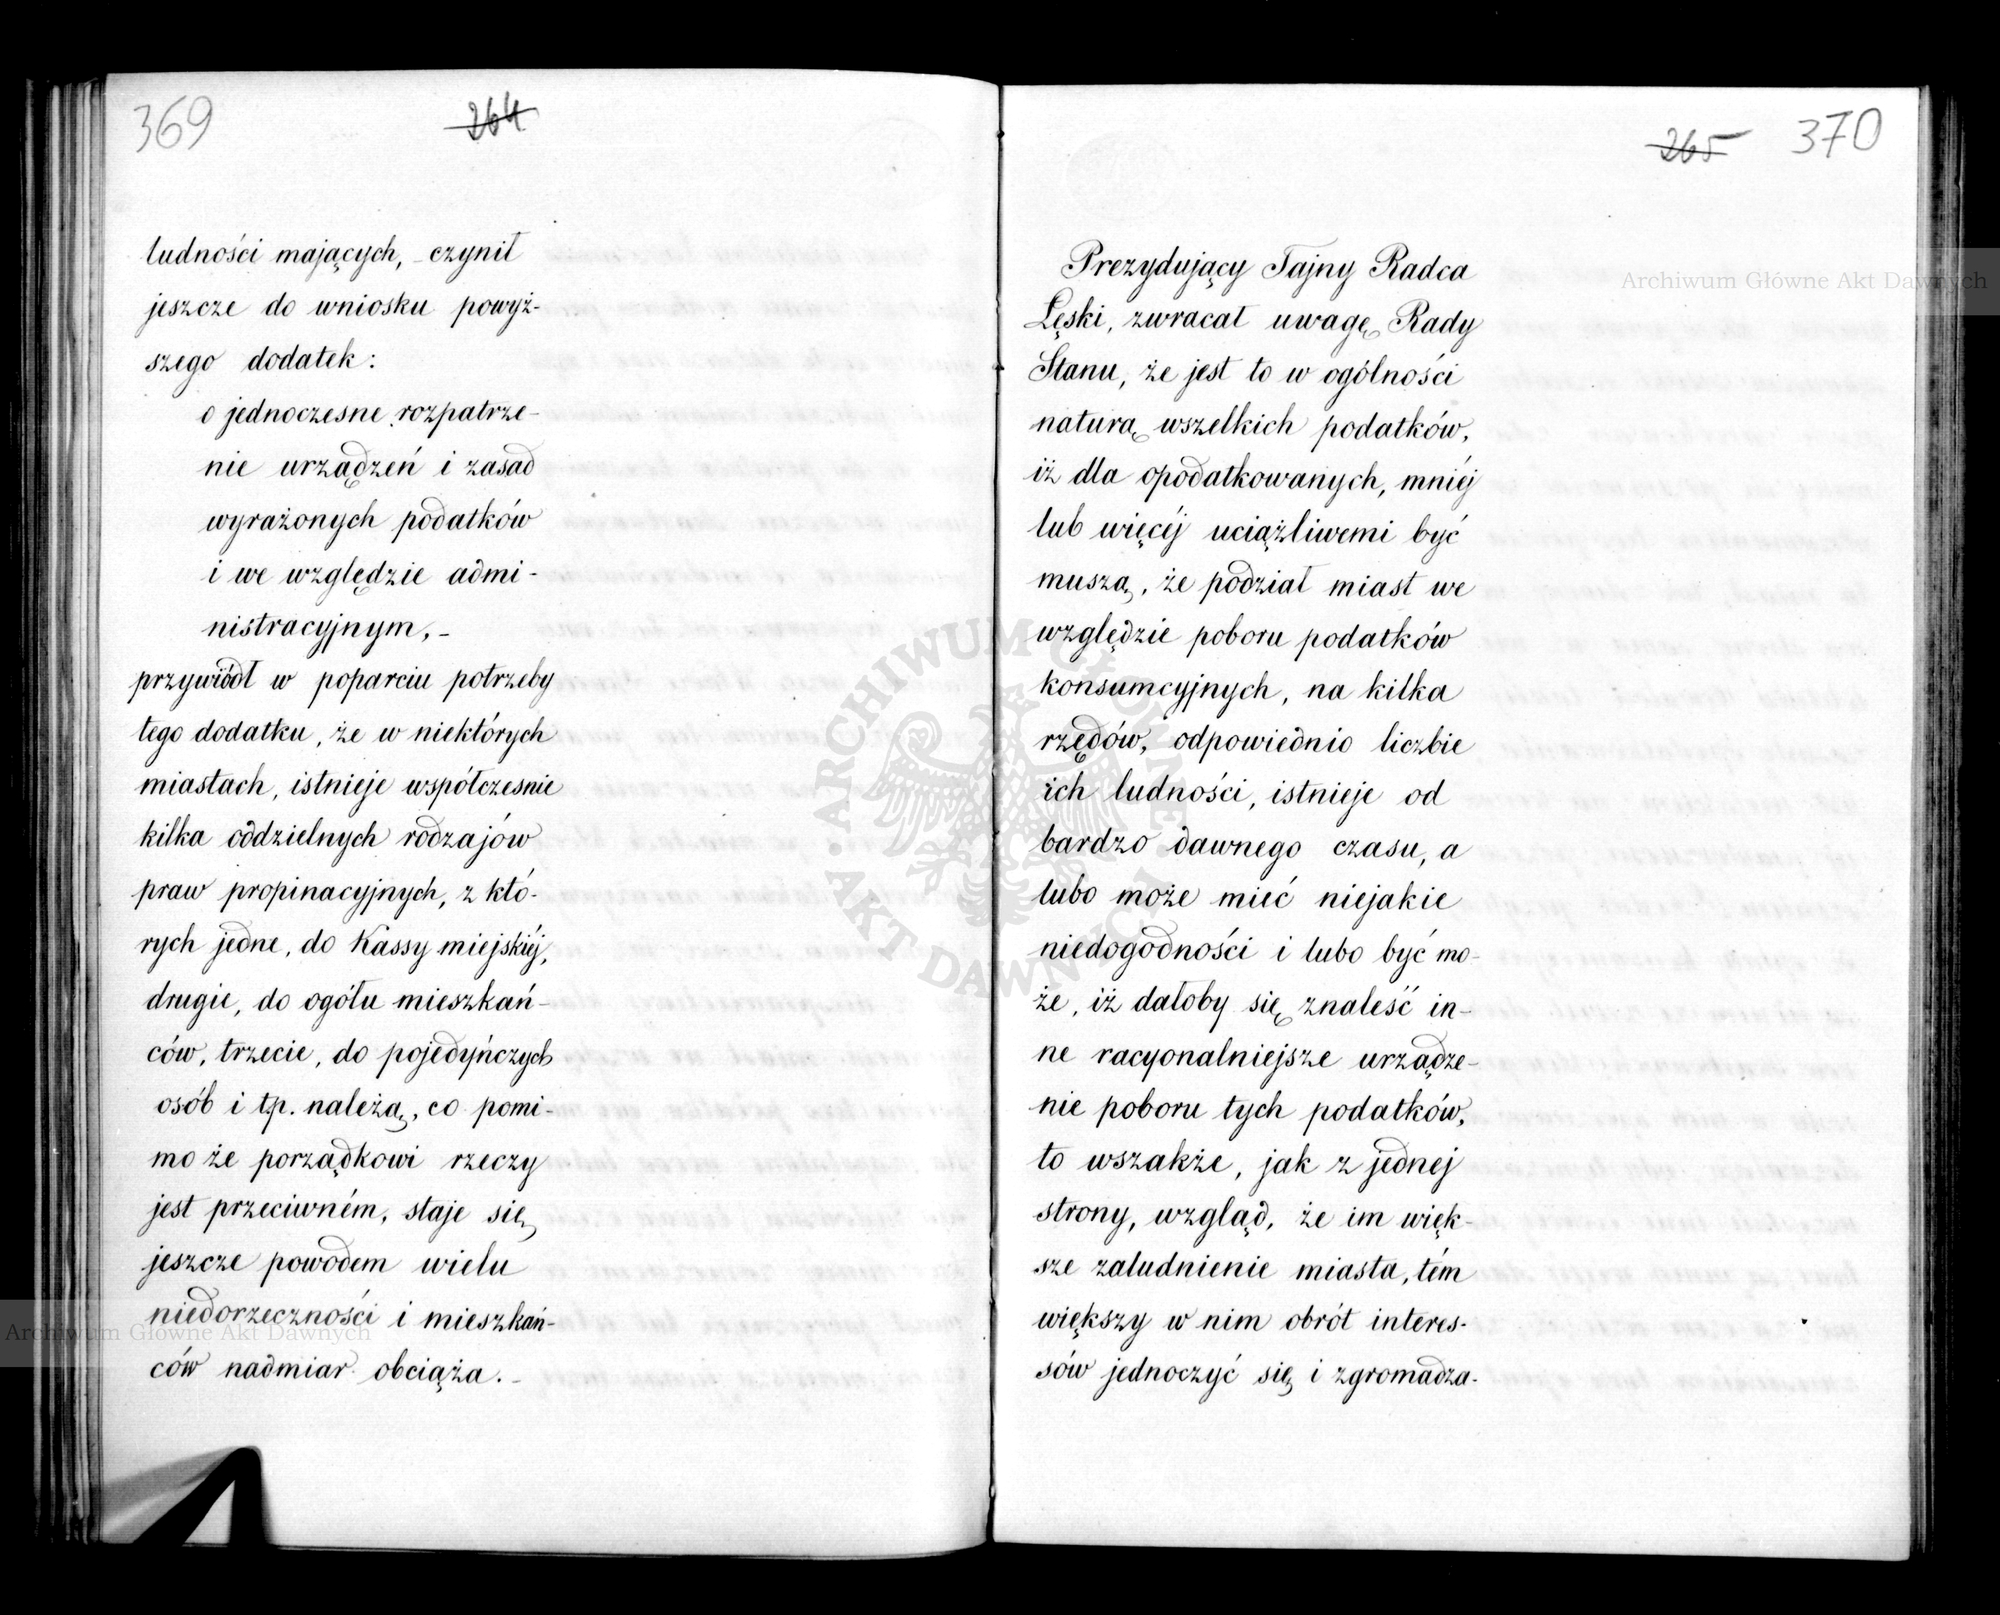 369
264
ludności mających, czynił
jeszcze do wniosku powyż-
szego dodatek:
o jednoczesne rozpatrze-
nie urządzeń i zasad
wyrażonych podatków
i we względzie admi-
nistracyjnym, –
przywiódł w poparciu potrzeby
tego dodatku, że w niektórych
miastach, istnieje współczesnie
kilka oddzielnych rodzajów
praw propinacyjnych, z któ-
rych jedne, do Kassy miejskiéj,
drugie, do ogółu mieszkań-
ców, trzecie, do pojedyńczych
osób i t.p. należą, co pomi-
mo że porządkowi rzeczy
jest przeciwném, staje się
jeszcze powodem wielu
niedorzeczności i mieszkań-
ców nadmiar obciąża. –
265
370
Prezydujący Tajny Radca
Łęski, zwracał uwagę Rady
Stanu, że jest to w ogólności
naturą wszelkich podatków,
iż dla opodatkowanych, mniéj
lub więcéj uciążliwemi być
muszą, że podział miast we
względzie poboru podatków
konsumcyjnych, na kilka
rzędów, odpowiednio liczbie
ich ludności, istnieje od
bardzo dawnego czasu, a
lubo może mieć niejakie
niedogodności i lubo być mo-
że, iż dałoby się znaleść in-
ne racyonalniejsze urządze-
nie poboru tych podatków,
to wszakże, jak z jednej
strony, wzgląd, że im więk-
sze zaludnienie miasta, tém
większy w nim obrót interes-
sów jednoczyć się i zgromadza-
Archiwum Główne Akt Dawnych
Archiwum Główne Akt Dawnych
ARCHIWUM GŁÓWNE
AKT DAWNYCH